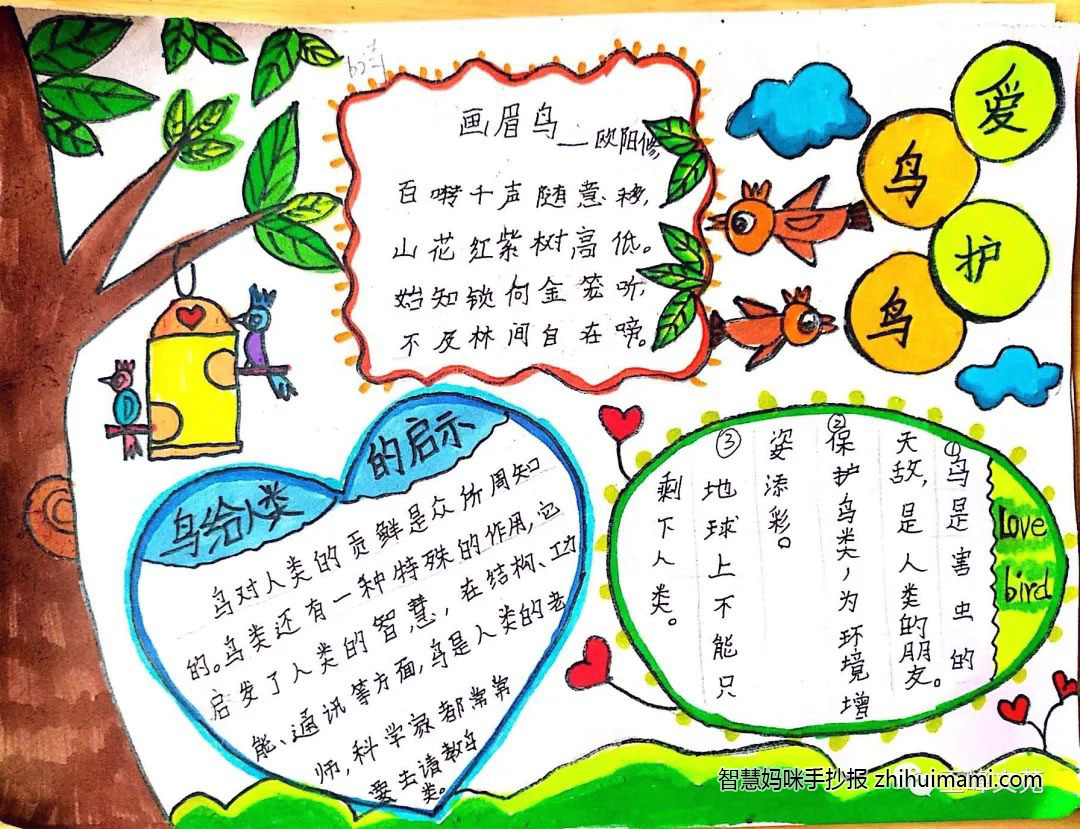 爱鸟护鸟
画眉鸟
—欧阳修
百啭千声随意移，
山花红紫树高低。
始知锁向金笼听，
不及林间自在啼。
鸟给人类的启示
鸟对人类的贡鲜是众所周知
的。鸟类还有一种特殊的作用，它
启发了人类的智慧，在结构、功
能、通讯等方面，鸟是人类的老
师，科学家都常常
要去请教鸟
类。
①鸟是害虫的
天敌，是人类的朋友。
②保护鸟类，为环境增
姿添彩。
③地球上不能只
剩下人类。
Love
bird
智慧妈咪手抄报 zhihuimami.com